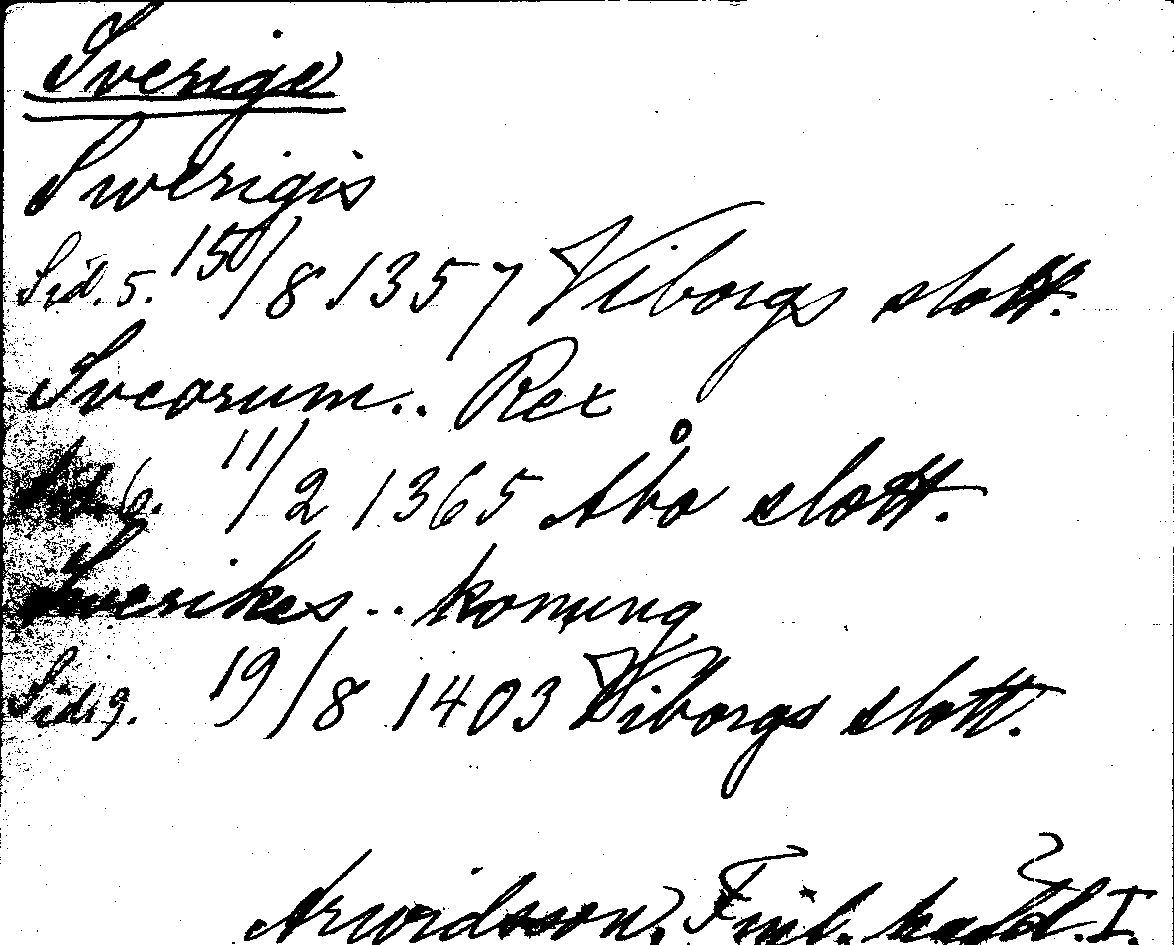 Sverige
Swerigis
Sid. 5. 15/8 1357 Viborgs slott.
Sveorum.. Rex
Sid. 6. 11/2 1365 Åbo slott.
Swerikes.. konung
Sid. 9. 19/8 1403 Viborgs slott.
Arwidsson, Finl. hävd. I.